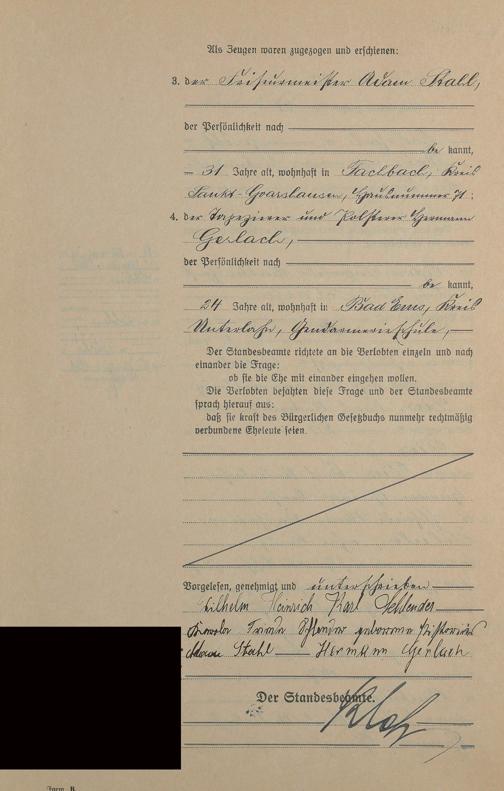 Als Zeugen waren zugezogen und erschienen:
3. der Friseurmeister Adam Stahl,
der Persönlichkeit nach
be kannt,
31 Jahre alt, wohnhaft in Fachbach, Kreis
Sankt-Goarshausen, Hausnummer 71;
4. der Tapezierer und Polsterer Hermann
Gerlach,
der Persönlichkeit nach
be kannt,
24 Jahre alt, wohnhaft in Bad Ems, Kreis
Unterlahn, Gendarmerieschule,
Der Standesbeamte richtete an die Verlobten einzeln und nach
einander die Frage:
ob sie die Ehe mit einander eingehen wollen.
Die Verlobten bejahten diese Frage und der Standesbeamte
sprach hierauf aus:
daß sie kraft des Bürgerlichen Gesetzbuchs nunmehr rechtmäßig
verbundene Eheleute seien.
Vorgelesen, genehmigt und unterschrieben
Wilhelm Heinrich Karl
geborene
Stahl Hermann Gerlach
Der Standesbeamte.
Form. B.